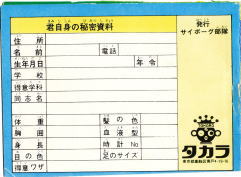 君自身の秘密資料
きみじしん ひみつしりょう
発行
サイボーグ部隊
住所
名前 電話
生年月日 年令
学校
得意学科
同志名
体重 髪の色
胸囲 血液型
身長 時計No
目の色 足のサイズ
得意ワザ
タカラ